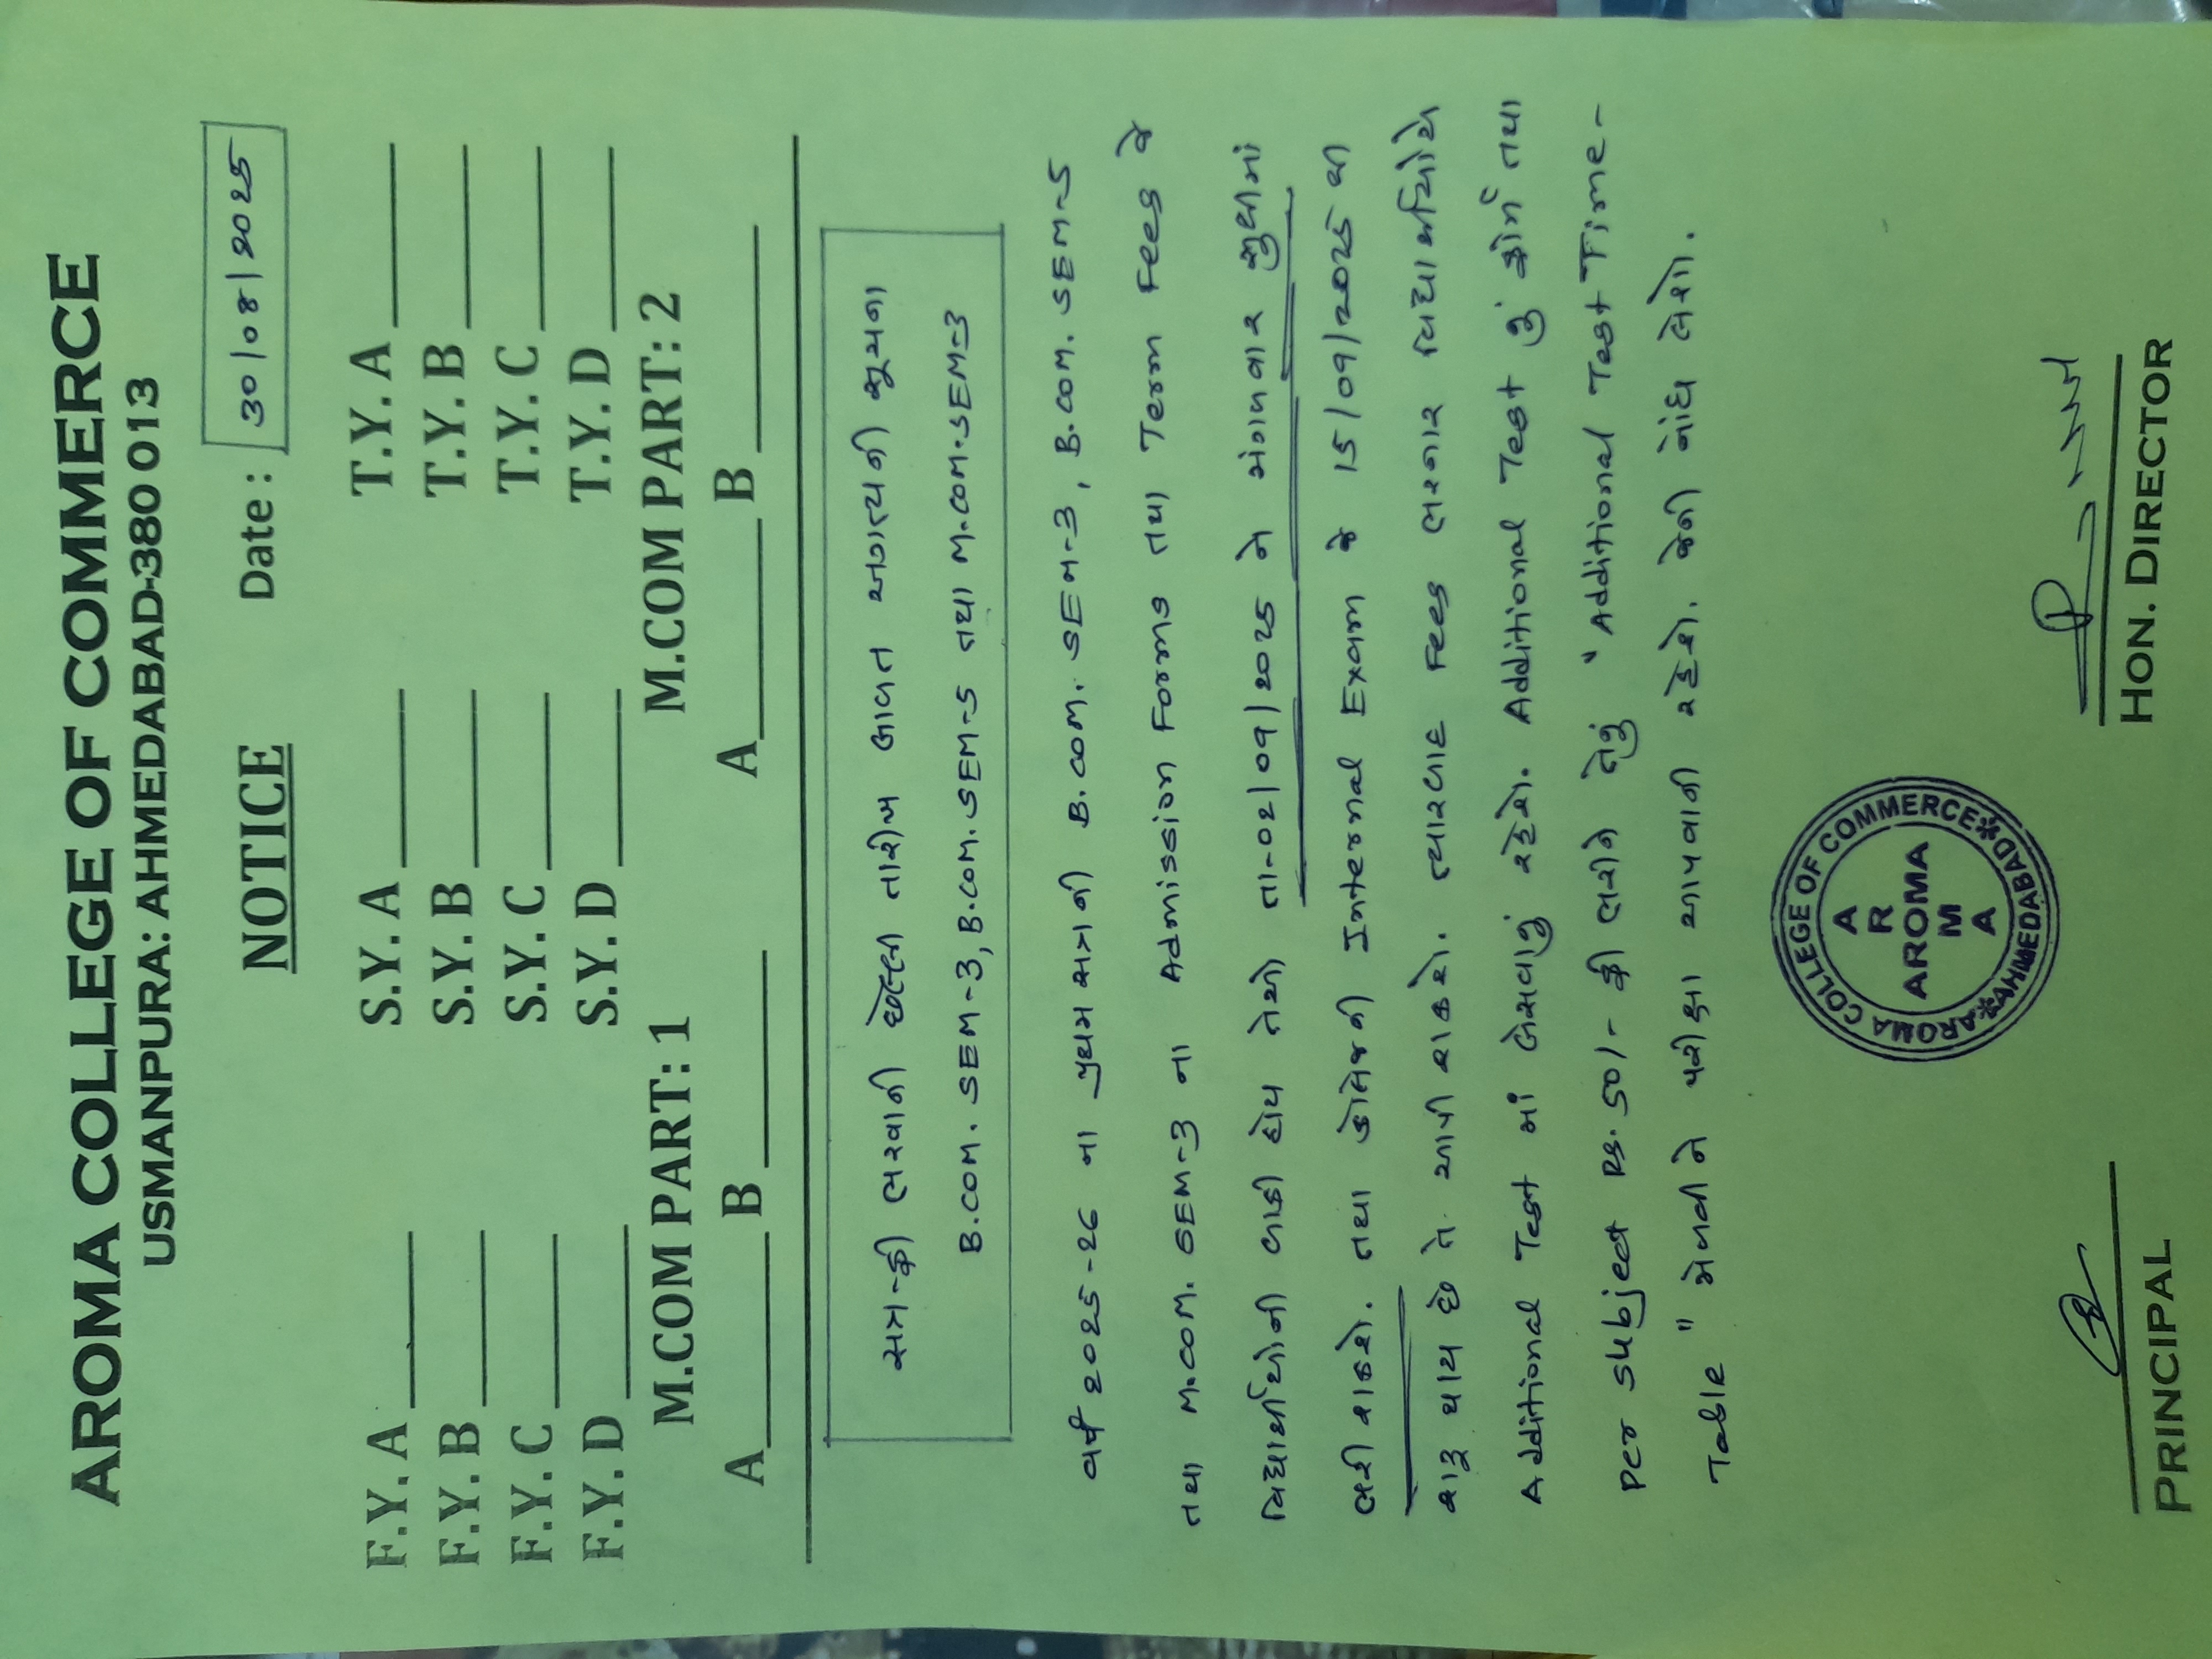 AROMA COLLEGE OF COMMERCE
USMANPURA: AHMEDABAD-380 013
NOTICE Date : 30/08/2025
F.Y. A ______ S.Y. A ______ T.Y. A ______
F.Y. B ______ S.Y. B ______ T.Y. B ______
F.Y. C ______ S.Y. C ______ T.Y. C ______
F.Y. D ______ S.Y. D ______ T.Y. D ______
M.COM PART: 1 M.COM PART: 2
A______ B ______ A______ B ______
સત્ર-ફી ભરવાની છેલ્લી તારીખ બાબત અગત્યની સૂચના
B.COM. SEM-3, B.COM. SEM-5 તથા M.COM. SEM-3
વર્ષ ૨૦૨૫-૨૬ ના પ્રથમ સત્રની B.COM. SEM-3, B.COM. SEM-5
તથા M.COM. SEM-3 ના Admission Forms તથા Term Fees જે
વિદ્યાર્થીઓની બાકી હોય તેઓ તા-૦૨/૦૯/૨૦૨૫ ને મંગળવાર સુધીમાં
ભરી શકશે. તથા કોલેજની Internal Exam જે ૧૫/૦૯/૨૦૨૫ થી
શરૂ થાય છે તે આપી શકશે. ત્યારબાદ Fees ભરનાર વિદ્યાર્થીઓએ
Additional Test માં બેસવાનું રહેશે. Additional Test નું ફોર્મ તથા
Per Subject Rs. 50/- ફી ભરીને તેનું "Additional Test Time-
Table" મેળવીને પરીક્ષા આપવાની રહેશે. જેની નોંધ લેશો.
AROMA COLLEGE OF COMMERCE * AHMEDABAD *
A
R
AROMA
M
A
PRINCIPAL HON. DIRECTOR